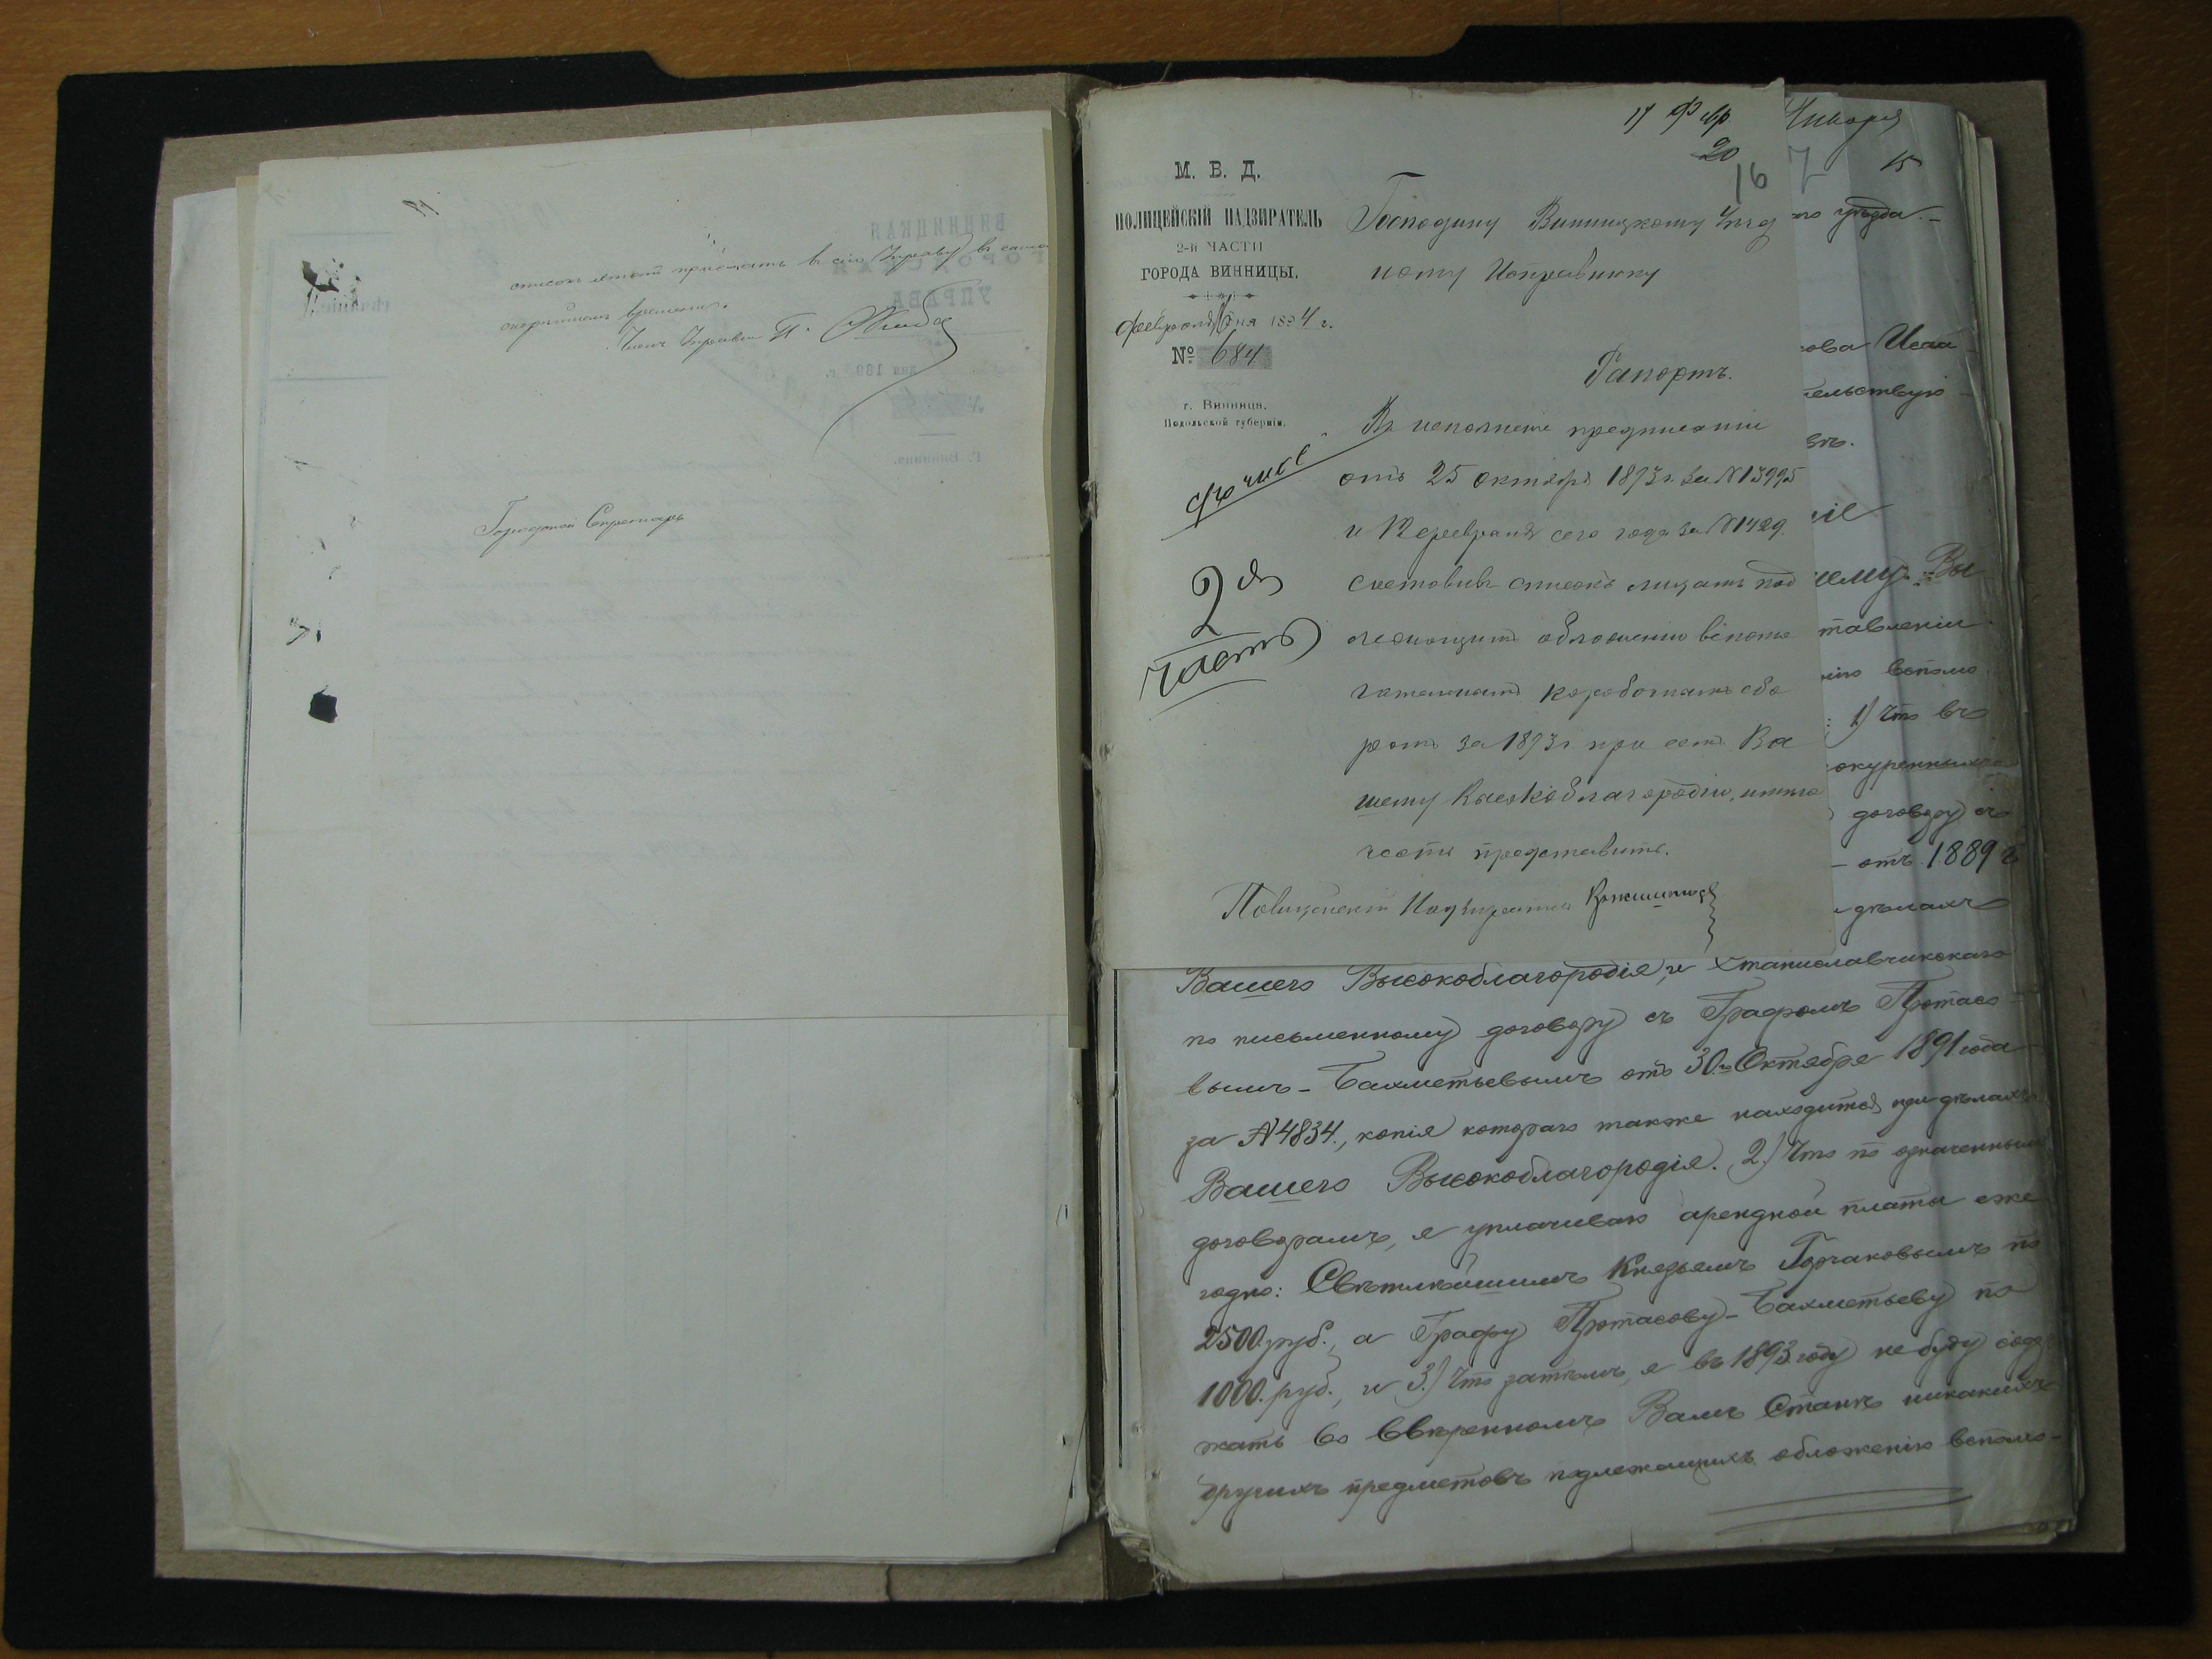 списокъ этотъ прислать въ сію Управу въ самомъ
скорѣйшемъ времени.
Членъ Управы
Городской Секретарь
М. В. Д.
ПОЛИЦЕЙСКІЙ НАДЗИРАТЕЛЬ
2-й ЧАСТИ
ГОРОДА ВИННИЦЫ.
февраля дня 1894 г.
№ 684
г. Винница,
Подольской губерніи.
2я
часть
17 Февр
20
16
Господину Винницкому Уѣзд
ному Исправнику
Рапортъ.
Въ исполненіе предписаній
отъ 25 октября 1893 г. за №13995
и февраля сего года за №1429.
составивъ списокъ лицамъ под
лежащимъ обложенію вспомо
гательнымъ коробочнымъ сбо
ромъ за 1893 г при семъ Ва
шему Высокоблагородію, имѣю
честь представить.
Полицейскій Надзиратель
Января
7 15
го уѣзда.-
ова Исаа
тельствую
іе
ему Вы
тавленіи
нію вспомо
1) Что въ
окуренныхъ
договору съ
- отъ 1889 г
дѣлахъ
Вашего Высокоблагородія, и Станиславчикскаго
по письменному договору съ Графомъ Протасо
вымъ-Бахметьевымъ отъ 30го Октября 1891 года
за №4834, копія котораго также находится при дѣлахъ
Вашего Высокоблагородія. 2) Что по означеннымъ
договорамъ, я уплачиваю арендной платы еже
годно: Свѣтлѣйшимъ Князьямъ Горчаковымъ по
2500 руб., а Графу Протасову-Бахметьеву по
1000 руб., и 3) Что затѣмъ, я въ 1893 году не буду содер
жать во ввѣренномъ Вамъ Станѣ никакихъ
другихъ предметовъ подлежащихъ обложенію вспомо-